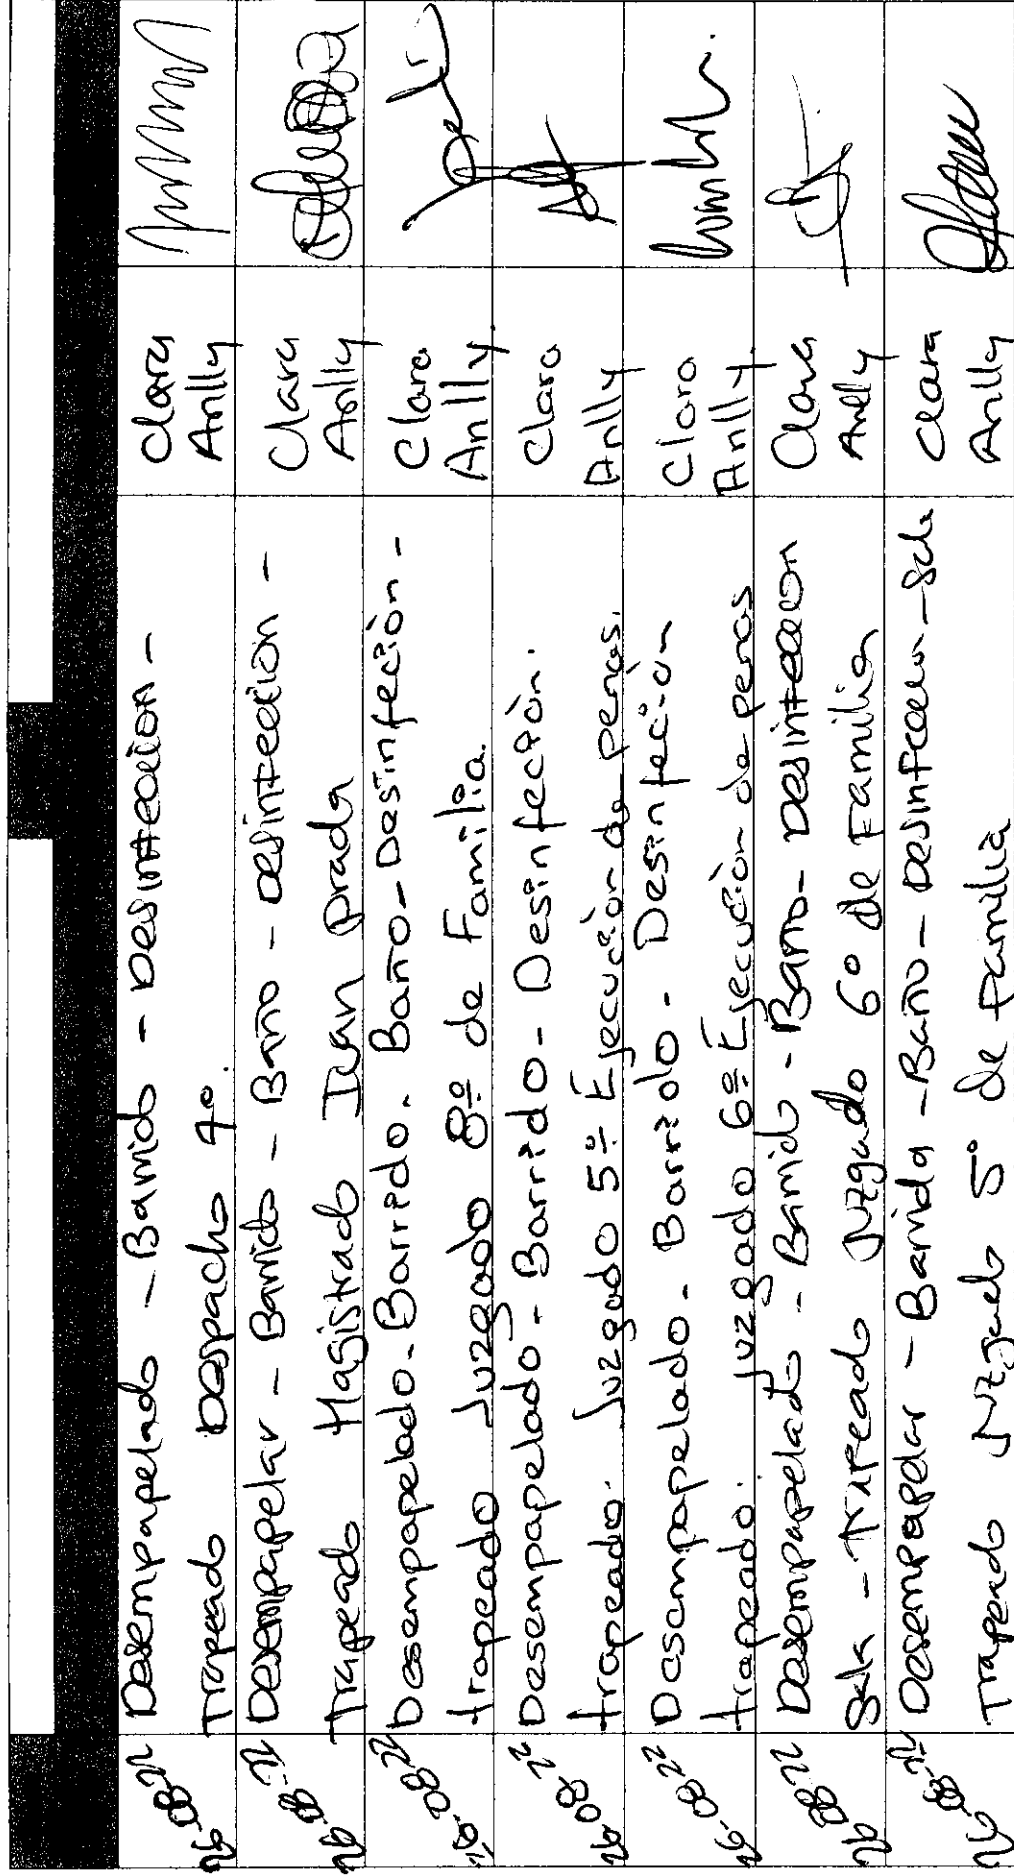 26-08-22 Desempapelado - Barrido - Desinfección - Clara
Trapeado Despacho 4º. Anlly
26-08-22 Desempapelar - Barrido - Baño - Desinfección - Clara
Trapeado Magistrado Ivan prada Anlly
26-08-22 Desempapelado. Barrido. Baño - Desinfeción - Clara
trapeado Juzgado 8º de Familia. Anlly
26-08-22 Desempapelado - Barrido - Desinfeción. Clara
trapeado. Juzgado 5º Ejecución de penas. Anlly
26-08-22 Desempapelado - Barrido - Desinfeción Clara
trapeado. Juzgado 6º Ejecución de penas Anlly
26-08-22 Desempapelado - Barrido - Baño - Desinfeccion Clara
Sala - Trapeado Juzgado 6º de Familia Anlly
26-08-22 Desempapelar - Barrida - Baño - Desinfeccion - Sala Clara
Trapeado Juzgado 5º de familia Anlly